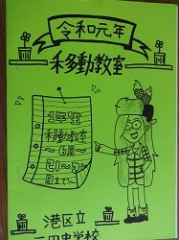 令和元年
移動教室
1年生
移動教室
〜6月〜
港区立
三田中学校